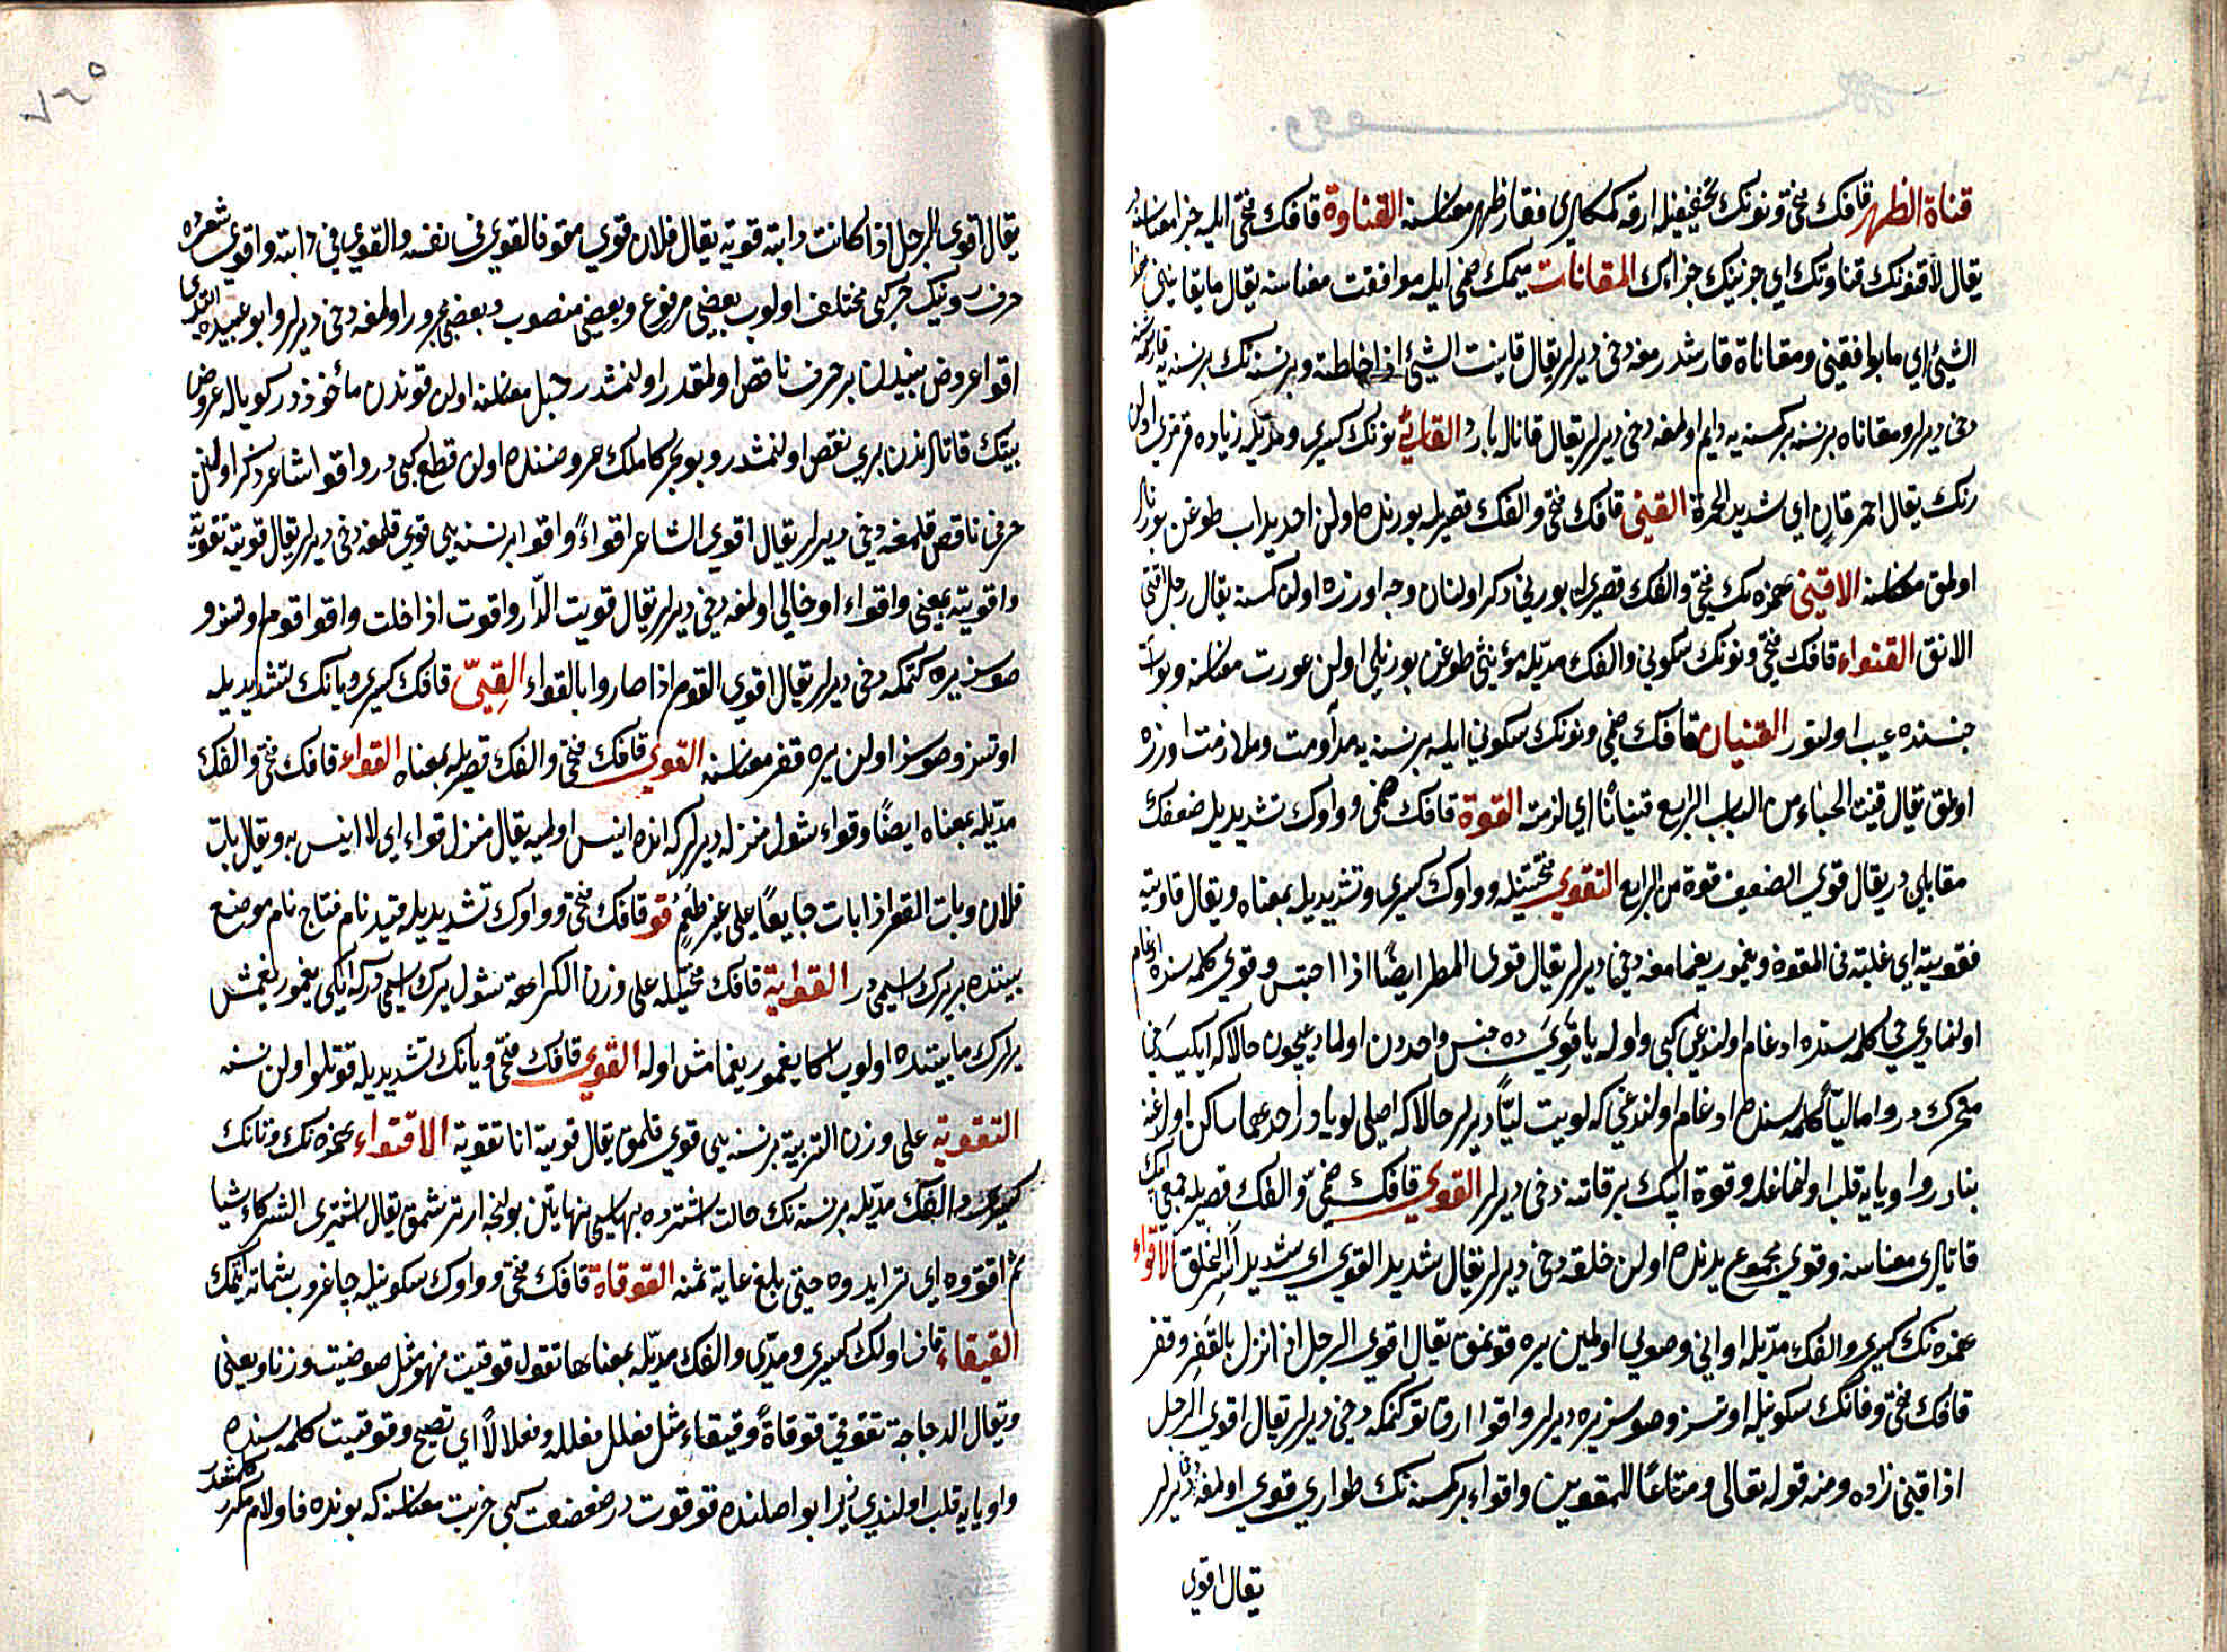 قناة الظهر قافك فتحى ونونك تخفيفيله ارقه كمكلرى فقار ظهر معناسنه القناوة قافك فتحى ايله جزا معناسنه
يقال لأقنونك قناوتك اي جزينك جزاءك المقانات ميمك ضمى ايله موافقت معناسنه يقال ما يقانينى هذا
الشئ اي ما يوافقنى ومقاناة قارشدرمغه دخى ديرلر يقال قانيت الشئ اذا خلطته وبر نسنه نك بر نسنه يه
دخى ديرلر ومقاناه بر نسنه بر كمسنه يه دايم اولمغه دخى ديرلر يقال قاناله بارد القانئ نونك كسرى ومديله زياده قرمزى اولن
رنك يقال احمر قان اي شديد الحمرة القنى قافك فتحى والفك قصريله بورنده اولن احديداب طوغن بورنلو
اولمق معناسنه الاقنى همزه نك فتحى والفك قصريله بورنى ذكر اولنان وجه اوزره اولن كمسنه يقال رجل اقنى
الانف القنواء قافك فتحى ونونك سكونى والفك مديله مؤنثى طوغن بورنلى اولن عورت معناسنه وبو آت
جنسنده عيب اولنور القنيان قافك ضمى ونونك سكونى ايله بر نسنه يه مداومت وملازمت اوزره
اولمق يقال قنيت الحياء من الباب الرابع قنيانا اي لزمته القوة قافك ضمى وواوك تشديديله ضعفك
مقابلى در يقال قوي الضعيف قوة من الرابع التقوى فتحتيله وواوك كسرى وتشديديله بمعناه ويقال قاويته
فقويته اي غلبته فى القوة ويغمور يغمامغه دخى ديرلر يقال قوى المطر ايضا اذا احتبس وقوي كلمه سنده ادغام
اولنمادى حي كلمه سنده ادغام اولندغى كبى واوله يا قوي ده جنس واحددن اولماديغيچون حالاكه ايكيسى دخى
متحرك در واما ليّا كلمه سنده ادغام اولندغى كه لويت ليّا ديرلر حالاكه اصلى لويا در احدهما ساكن اولدغنه
بنادر واو يايه قلب اولنماغله وقوة ايپك بر قاتنه دخى ديرلر القوى قافك ضمى والفك قصريله جمعى ايپك
قاتلرى معناسنه وقوى مجموع بدنده اولن خلقه دخى ديرلر يقال شديد القوى اي شديد اسر الخلق الاقواء
همزه نك كسرى والفك مديله اوتى وصويى اولمين يره قونمق يقال اقوى الرجل اذا نزل بالقفر وقفر
قافك فتحى وفانك سكونيله اوتسز وصوسز يره ديرلر واقوا ارقاتو كنمكه دخى ديرلر يقال اقوى الرجل
اذا فنى زاده ومنه قوله تعالى ومتاعا للمقوين واقواء بر كمسنه نك طوارى قوى اولمغه دخى ديرلر
يقال اقوى
٧٦٥
يقال اقوى الرجل اذا كانت دابته قوية يقال فلان قوي مقو فالقوي فى نفسه والمقوي فى دابته واقوى شعرده
حرف رويك حركه سى مختلف اولوب بعضى مرفوع وبعضى منصوب وبعضى مجرور اولمغه دخى ديرلر وابو عبيده
اقوا عروض بيتدن بر حرف ناقص اولمقدر اولنمشدر حبل معناسنه اولن قوتدن مأخوذدر كويا له عروض
بيتك قاتلرندن برى نقص اولنمشدر وبو بحر كاملك عروضنده اولن قطع كبى در واقوا شاعر ذكر اولنن
حرفى ناقص قلمغه دخى ديرلر يقال اقوى الشاعر اقواء واقوا بر نسنه يى قوي قلمغه دخى ديرلر يقال قويته تقوية
واقويته بمعنى واقواء او خالى اولمغه دخى ديرلر يقال قويت الدار واقوت اذا خلت واقوا قوم اوتسز و
صوسز يره كتمكه دخى ديرلر يقال اقوى القوم اذا صاروا بالقواء القِيّ قافك كسرى ويانك تشديديله
اوتسز وصوسز اولن يره قفر معناسنه القوى قافك فتحى والفك قصريله بمعناه القواء قافك فتحى والفك
مديله بمعناه ايضا وقواء شول منزله ديرلر كه انده انيس اولميه يقال منزل قواء اي لا انيس به ويقال بات
فلان وبات القفر اذا بات جايعا على غير طعم قو قافك فتحى وواوك تشديديله فيد نام نتاج نام موضع
بيننده بر يرك اسمى در القواية قافك فتحيله على وزن الكراهة شول يرك اسمى در كه ايكى يغمور يغمش
يرلرك مابيننده اولوب اكا يغمور يغمامش اوله القوي قافك فتحى ويانك تشديديله قوتلو اولن نسنه
التقوية على وزن التربية بر نسنه يى قوي قلمق يقال قويته انا تقوية الاقتواء همزه نك وتانك
كسرى والفك مديله بر نسنه نك حالت اشتراده بهاسى نهايتن بولنجه ارترشمق يقال اشترى الشركاء شيئا
ثم اقتووه اي تزايدوه حتى بلغ غاية ثمنه القوقاة قافك فتحى وواوك سكونيله چاغروب شماته ايتمك
القيقاء قاف اولك كسرى ومدى والفك مديله بمعناها تقول قوقيت فهو مثل ضوضيت وزنا ومعنى
ويقال الدجاجة تقوقى قوقاة وقيقاء مثل فعلل فعللة وفعلالا اي تصيح وقوقيت كلمه سنده
واو يايه قلب اولندى زيرا بو اصلنده قوقوت در ضعضعت كبى خربت معناسنه كه بونده فا ولام مكرر